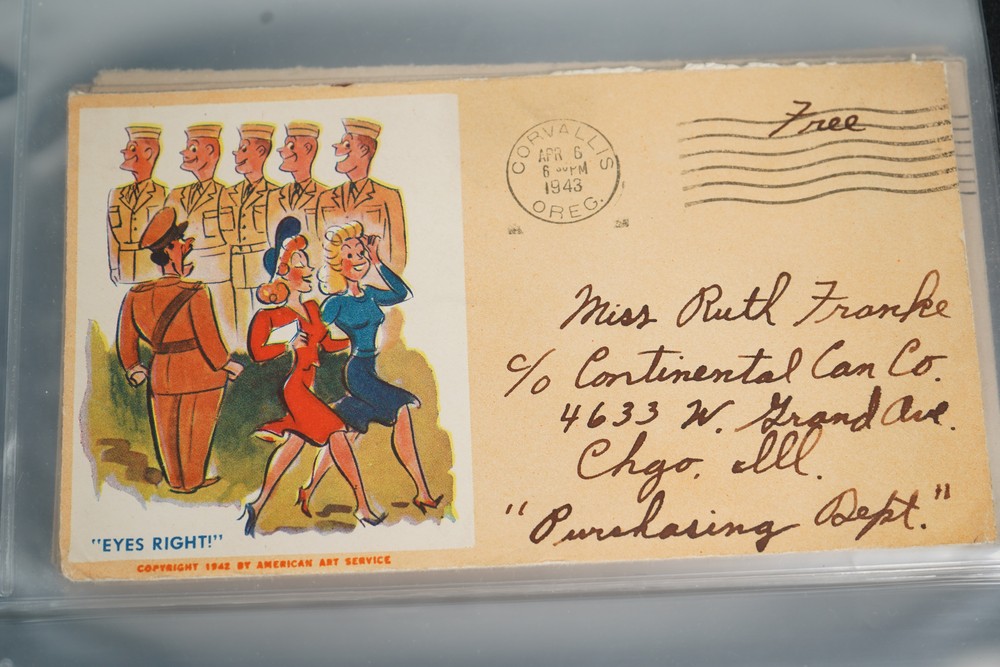 "EYES RIGHT!"
COPYRIGHT 1942 BY AMERICAN ART SERVICE
CORVALLIS
APR 6
6 00 PM
1943
OREG.
Free
Miss Ruth Franke
c/o Continental Can Co.
4633 W. Grand Ave.
Chgo, Ill.
"Purchasing Dept."